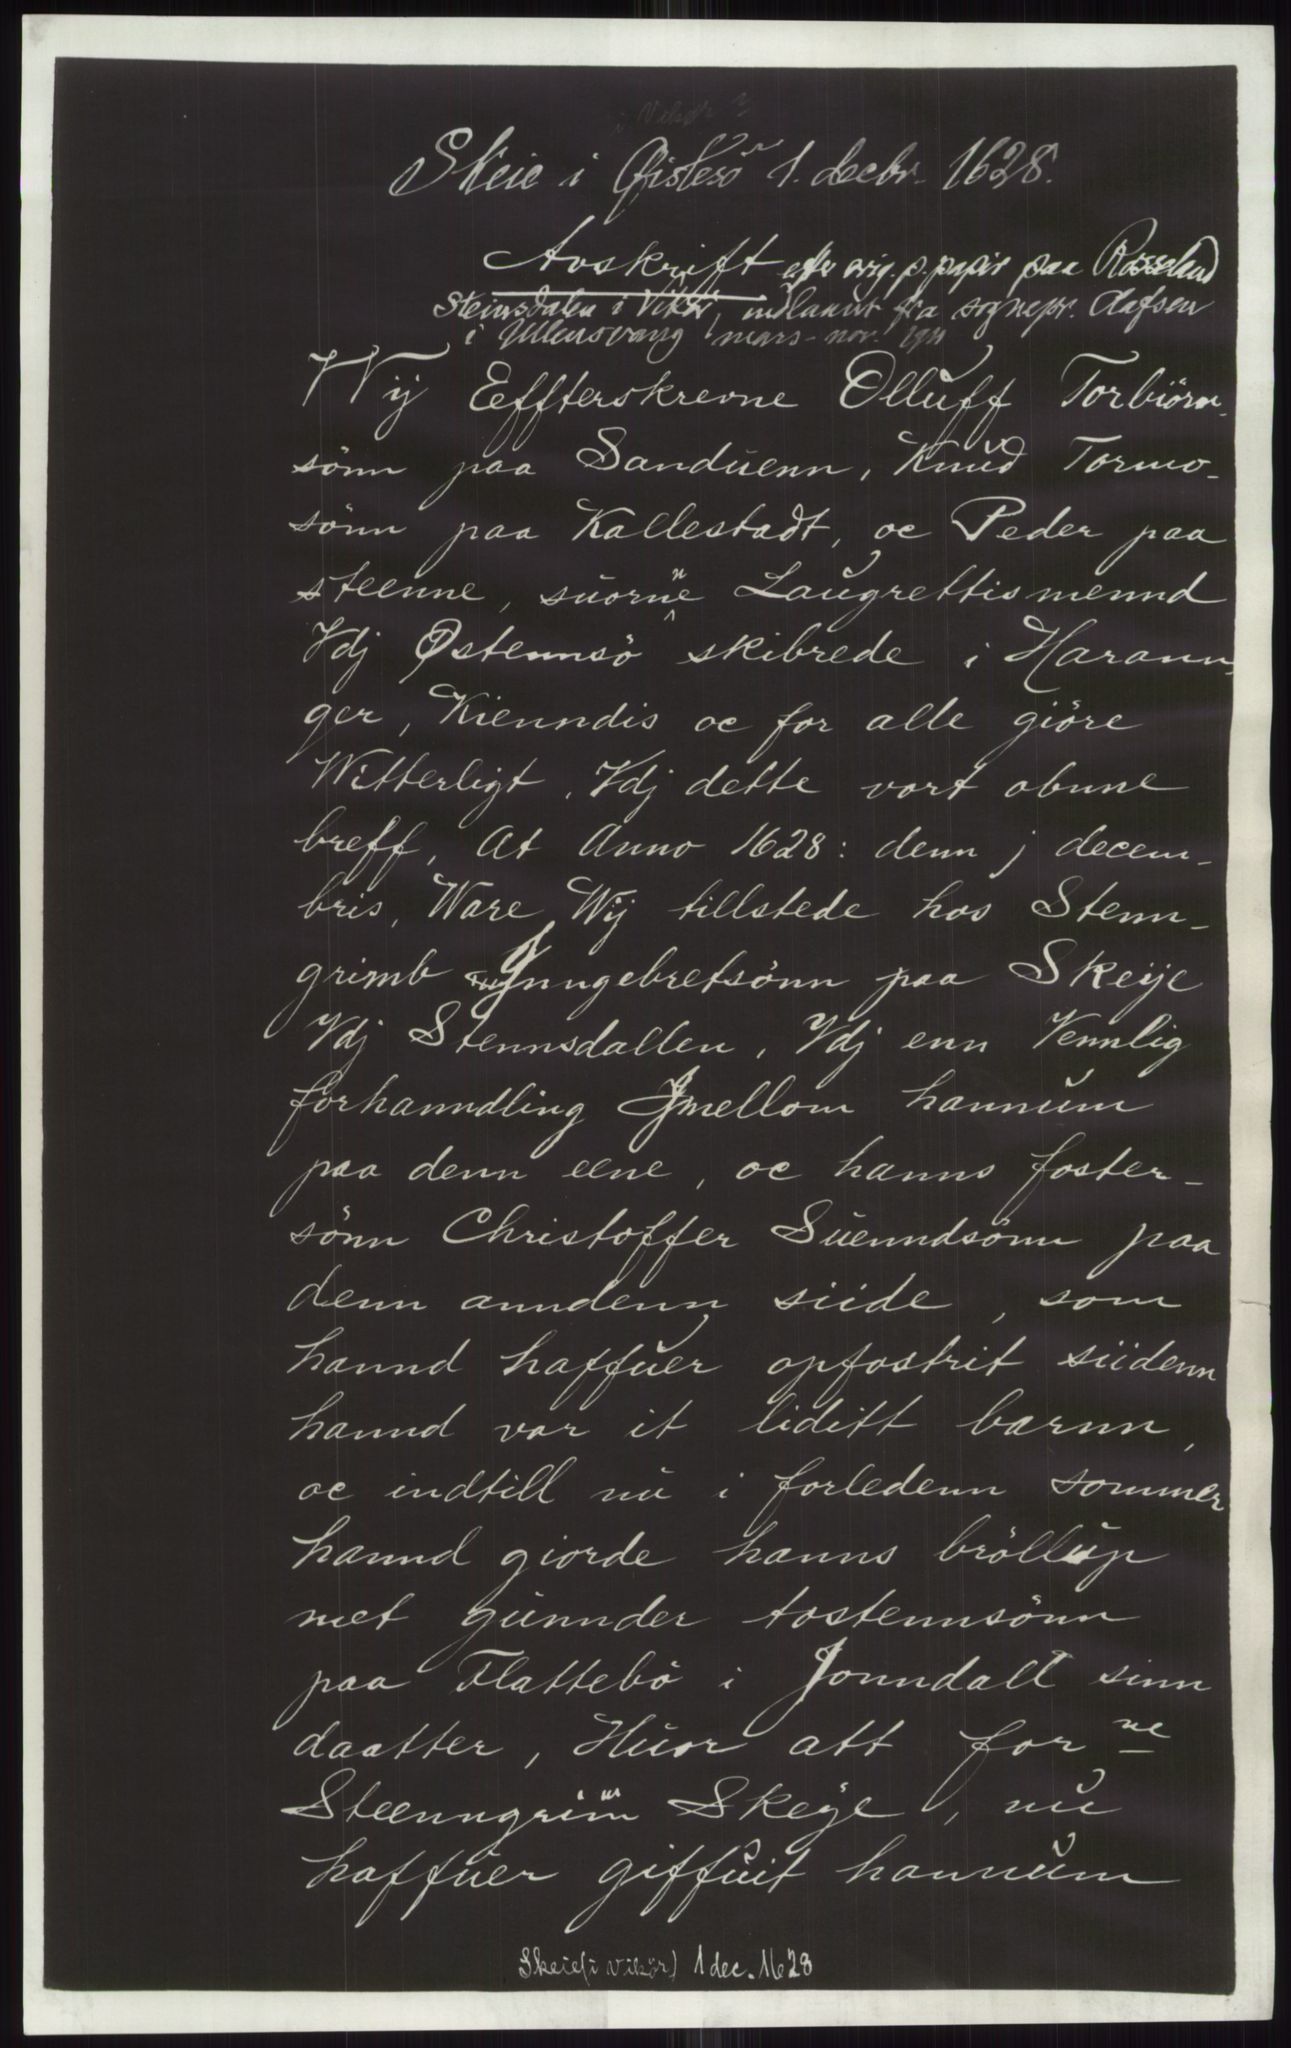 i Vikør ?
Skeie i Østesö 1. decbr. 1628.
Avskrift efter orig. p. papir paa Rosseland
Steinsdalen i Vikör, indlaant fra sognepr. Olafsen
i Ullensvang mars - nov. 1911
Wij Eeffterskrevne Olluff Torbiörn-
sönn paa Sanduenn, Knud Tormo-
sönn paa Kallestadt, oc Peder paa
steenne, suorne Laugrettismennd
Vdj Østennsö skibrede i Harann-
ger, Kienndis oc for alle giöre
Witterligt, Vdj dette vort obnne
breff, At Anno 1628: denn j decem-
bris, Ware Wij tillstede hos Stenn-
grimb Jnngebretsönn paa Skeije
Vdj Stennsdallen, Vdj enn Vennlig
forhanndling Jmellom hannum
paa denn eene, oc hanns foster-
sönn Christoffer Suenndsönn paa
denn anndenn siide, som
hannd haffuer opfostrit siidenn
hannd var it liditt barnn,
oc indtill nu i forledenn sommer
hannd giorde hanns bröllup
met gunnder tostennsönn
paa Flattebö i Jonndall sinn
daatter, Huor att for ne
Steenngrim Skeije, nu
haffuer giffuit hannum
Skeie (i Vikör) 1 dec. 1628